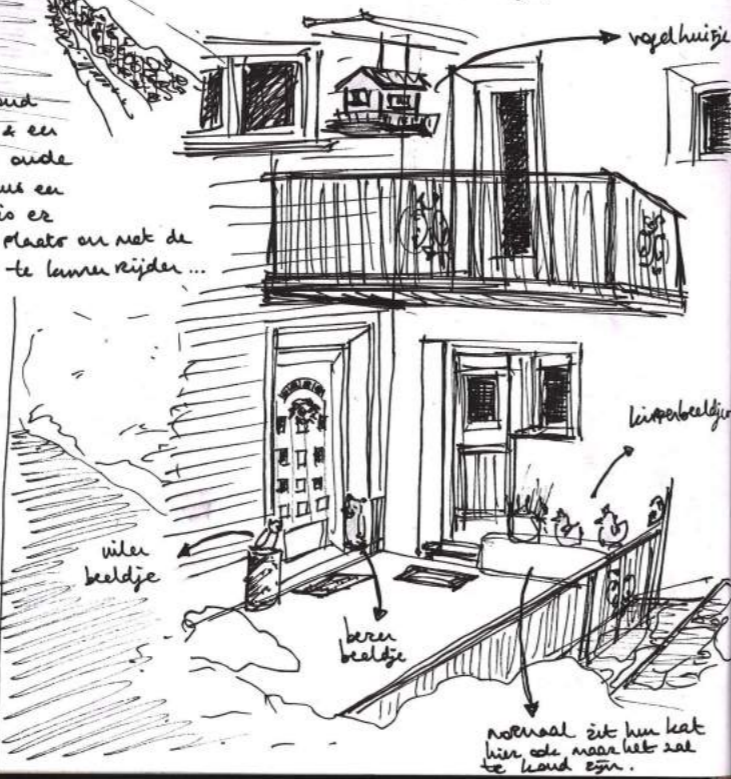 vogelhuisje
oud
& een
oude
us en
is er
plaats om met de
te kunnen rijden...
kippenbeeldjes
uilen
beeldje
beren
beeldje
normaal zit hun kat
hier ook maar het zal
te koud zijn.